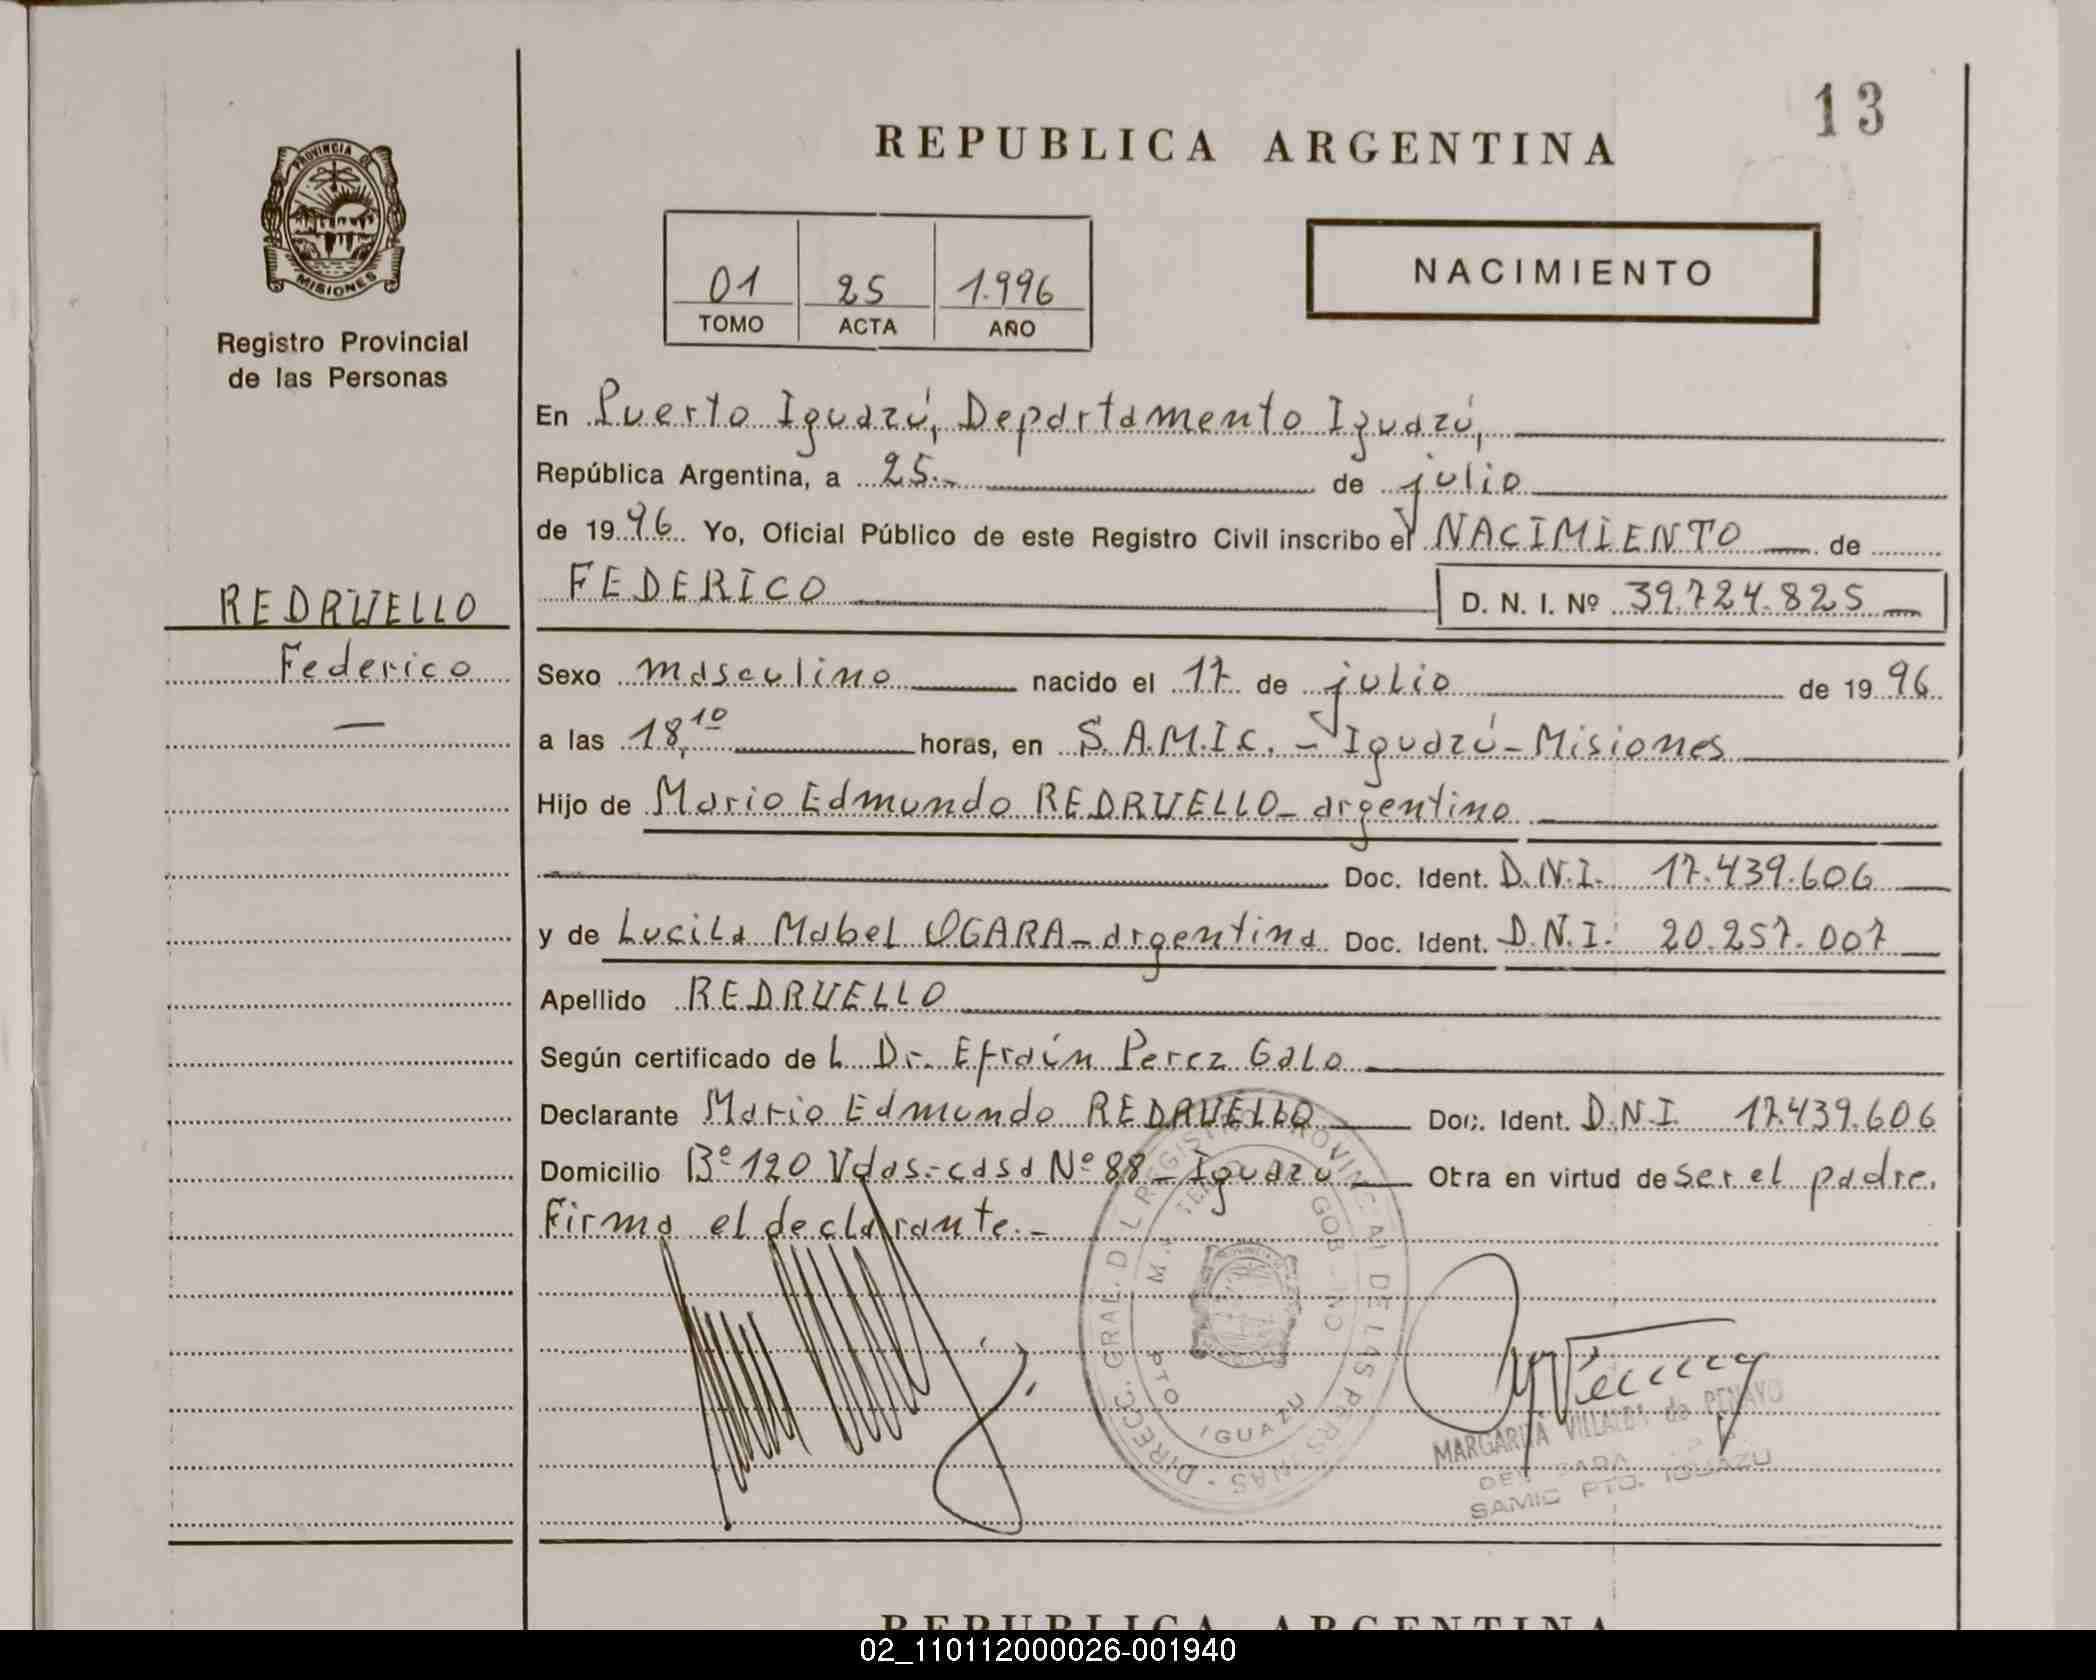 13
REPUBLICA ARGENTINA
PROVINCIA DE
MISIONES
Registro Provincial
de las Personas
01 25 1.996
TOMO ACTA AÑO
NACIMIENTO
En Puerto Iguazú, Departamento Iguazú,
República Argentina, a 25.- de julio
de 1996 Yo, Oficial Público de este Registro Civil inscribo el NACIMIENTO de
FEDERICO D. N. I. Nº 39.724.825
REDRUELLO
Federico
Sexo masculino nacido el 17 de julio de 1996
a las 18,10 horas, en S.A.M.I.C. - Iguazú - Misiones
Hijo de Mario Edmundo REDRUELLO - argentino
Doc. Ident. D.N.I. 17.439.606
y de Lucila Mabel OGARA - argentina Doc. Ident. D.N.I. 20.257.007
Apellido REDRUELLO
Según certificado de L Dr. Efraín Perez Galo
Declarante Mario Edmundo REDRUELLO Doc. Ident. D.N.I. 17.439.606
Domicilio Bº 120 Vdas.- casa Nº 88 - Iguazú Obra en virtud de ser el padre.
Firma el declarante.-
DIRECC. GRAL. DEL REGISTRO PROVINCIAL DE LAS PERSONAS
GOBIERNO
PTO IGUAZU
MARGARITA VILLALBA de PENAYO
SAMIC PTO. IGUAZU
REPUBLICA ARGENTINA
02_110112000026-001940